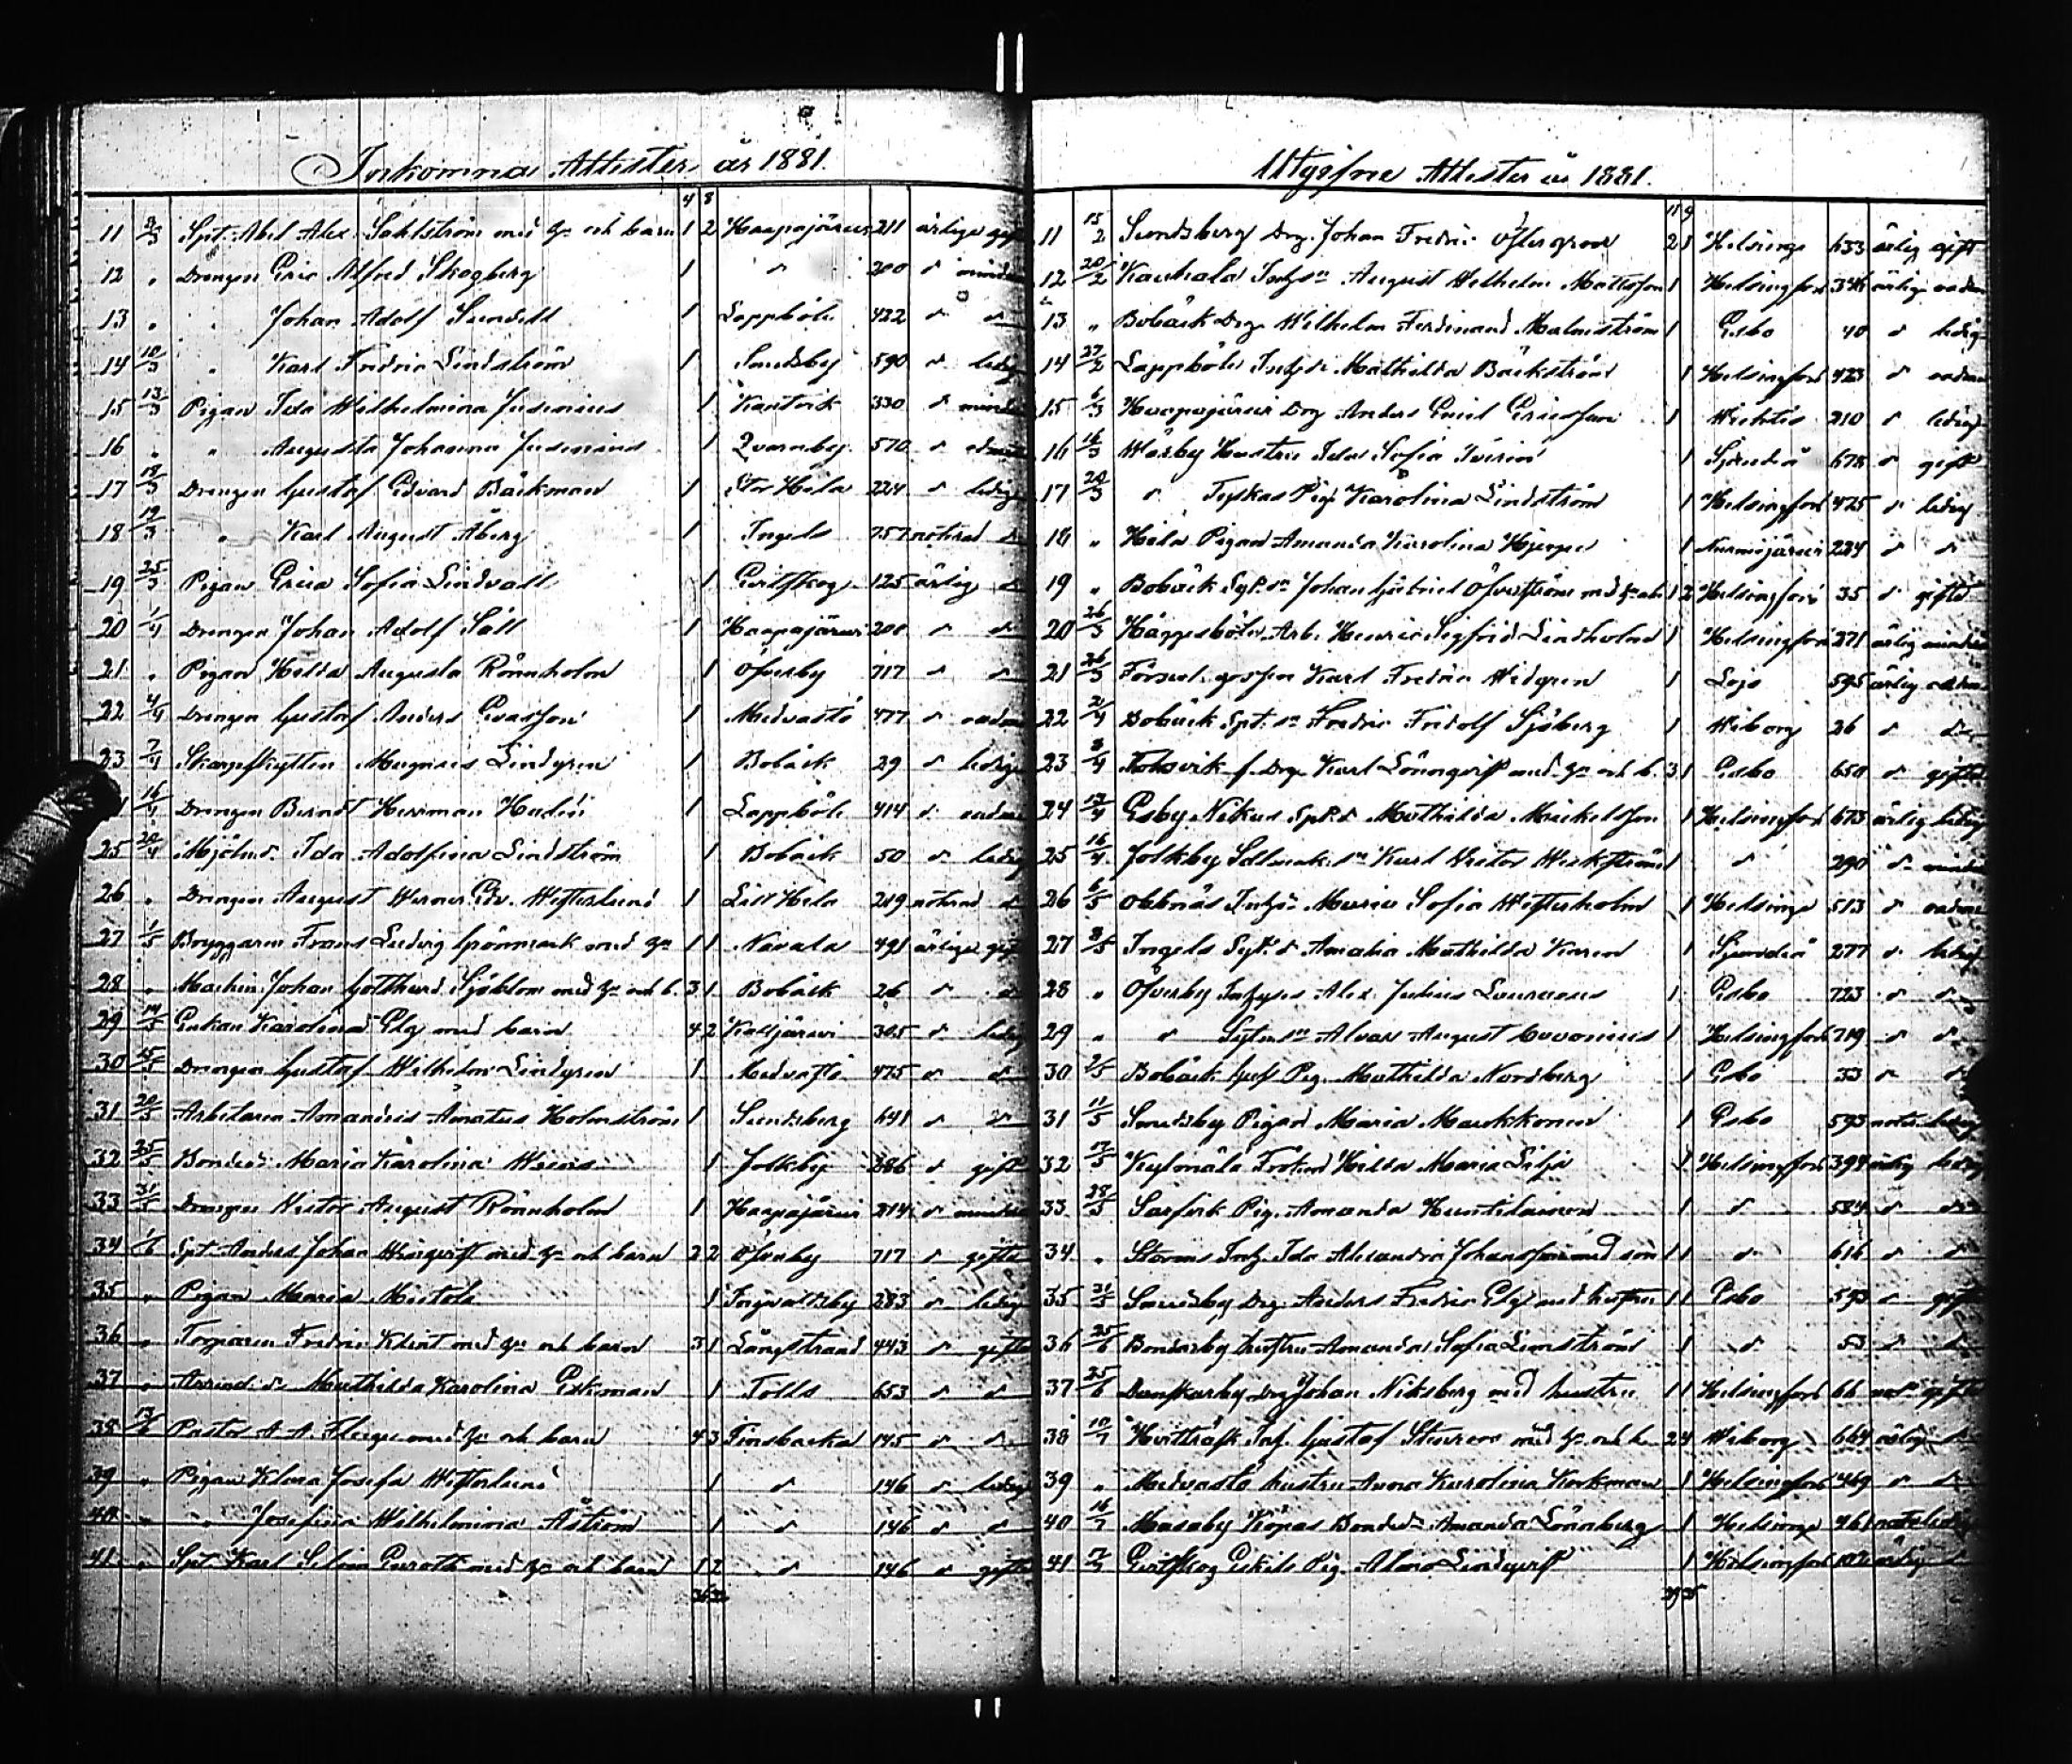 Inkomna Attester år 1881.
4 8
11 8/3 Spt. Abel Alex. Sahlström med h. och barn 1 2 Haapajärvi 211 ärliga gift
12 " Drengen Eric Alfred Skogberg 1 " 200 d
13 " " Johan Adolf Sundell 1 Lappböle 422 d d
14 10/3 " Karl Fredric Lindström 1 Smedsby 590 d ledig
15 13/3 Pigan Ida Wilhelmina Juslenius 1 Kantvik 330 d
16 " " Augusta Johanna Juslenius 1 Qvarnby 570 d
17 18/3 Drengen Gustaf Edvard Bäckman 1 Stor Hila 224 d ledig
18 19/3 " Karl August Åberg 1 Ingels 757 d
19 25/3 Pigan Erica Sofia Lindvall 1 Evitskog 125 ärlig d
20 1/4 Drengen Johan Adolf Säll 1 Haapajärvi 200 d d
21 " Pigan Hilda Augusta Rönnholm 1 Öfverby 717 d d
22 4/4 Drengen Gustaf Anders Evasson 1 Medvastö 477 d
23 7/4 Skarpskytten Magnus Lindgren 1 Bobäck 29 d ledig
16/4 Drengen Berndt Herrman Hedén 1 Lappböle 414 d
25 20/4 Mjöln.d. Ida Adolfina Lindström 1 Bobäck 50 d ledig
26 " Drengen August Werner Edv. Westerlund 1 Lill Hila 219 d
27 1/5 Bryggaren Frans Ludvig Grönmark med h. 1 1 Navala 491 ärliga gift
28 " Machin. Johan Gotthard Sjöblom med h. och b. 3 1 Bobäck 26 d d
29 14/5 Enkan Karolina Elg med barn 4 2 Kalljärvi 305 d ledig
30 15/5 Drengen Gustaf Wilhelm Lindgren 1 Medvastö 475 d d
31 20/5 Arbetaren Amandus Amatus Holmström 1 Sundsberg 641 d d
32 25/5 Bonded. Maria Karolina 1 Jolkby 286 d gift
33 31/5 Drengen Victor August Rönnholm 1 Haapajärvi 214 d
34 1/6 Spt. Anders Johan Winqvist med h. och barn 2 2 Öfverby 717 d gifte
35 " Pigan Maria Mietola 1 Ingvaldsby 283 d ledig
36 " Torparen Fredric Klint med h. och barn 3 1 Långstrand 443 d gifte
37 " Mathilda Karolina Eskman 1 Tolls 653 d d
38 13/6 Pastor A. A. med h. och barn 4 3 Finsbacka 145 d d
39 " Pigan Klara Josefa Westerlund 1 d 146 d ledig
40 " " Josefina Wilhelmina Åström 1 d 146 d d
41 " Spt. Karl Selim Enroth med h. och barn 1 2 d 146 d gifte
Utgifna Attester år 1881.
11 9
11 15/2 Sundsberg Drg. Johan Fredric Östergren 2 1 Helsinge 633 ärlig gift
12 20/2 Kauhala Inhs.sn August Wilhelm Mattsson 1 Helsingfors 346 ärlig
13 " Bobäck Drg. Wilhelm Ferdinand Malmström 1 Esbo 40 d ledig
14 27/2 Lappböle Inh.d. Mathilda Bäckström 1 Helsingfors 423 d
15 6/3 Haapajärvi Drg Anders Emil Ericsson 1 Wichtis 210 d ledig
16 16/3 Wäsby Hustru Ida Sofia 1 Sjundeå 678 d gift
17 20/3 d Tyskas Pig. Karolina Lindström 1 Helsingfors 425 d ledig
18 " Hila Pigan Amanda Karolina Hjerpe 1 Nurmijärvi 224 d d
19 " Bobäck Johan Gabriel Öfverström med 1 2 Helsingfors 35 d gifte
20 26/3 Häggesböle Arb. Henric Sigfrid Lindholm 1 Helsingfors 271 ärlig
21 26/3 gossen Karl Fredric Widgren 1 Lojo 595 ärlig
22 2/4 Bobäck Spt. sn Fredric Fridolf Sjöberg 1 Wiborg 26 d d
23 8/4 f. Drg. Karl Lönnqvist med h. och b. 3 1 Esbo 650 d gifte
24 13/4 Esby Nikus Spt.d. Mathilda Mickelsson 1 Helsingfors 673 ärlig ledig
25 16/4 Jolkby Karl Victor Wickström 1 d 290 d
26 6/5 Obbnäs Inh.d. Maria Sofia Westerholm 1 Helsinge 513 d
27 8/5 Ingels Spt.d. Amalia Mathilda Karen 1 Sjundeå 277 d ledig
28 " Öfverby Alex. Julius Laurenius 1 Esbo 723 d d
29 " d Alvar August 1 Helsingfors 719 d d
30 9/5 Bobäck Pig. Mathilda Nordberg 1 Esbo 33 d d
31 11/5 Smedsby Pigan Maria Maukkonen 1 Esbo 593 ledig
32 17/5 Kylmälä Fröken Hilda Maria Lilja 1 Helsingfors 394 ärlig ledig
33 28/5 Sarfvik Pig. Amanda 1 d 584 d d
34 " Storms Inh. Ida Alexandra Johansson med son 1 1 d 616 d d
35 31/5 Smedsby Drg. Anders Fredric Elg med hustru 1 1 Esbo 593 d gifte
36 25/6 Bondarby hustru Amanda Sofia Lindström 1 d 53 d d
37 25/6 Danskarby Drg. Johan Niksberg med hustru 1 1 Helsingfors 66 gifte
38 10/7 Hvitträsk Inh. Gustaf med h. och b. 2 4 Wiborg 664 ärlig d
39 " Medvastö hustru Anna Karolina Korkman 1 Helsingfors 469 d d
40 16/7 Masaby Köpas Bonded. Amanda Lönnberg 1 Helsinge 461 ledig
41 Evitskog Eskils Pig. Alma Lindqvist 1 Helsingfors 102 ärlig
39 35